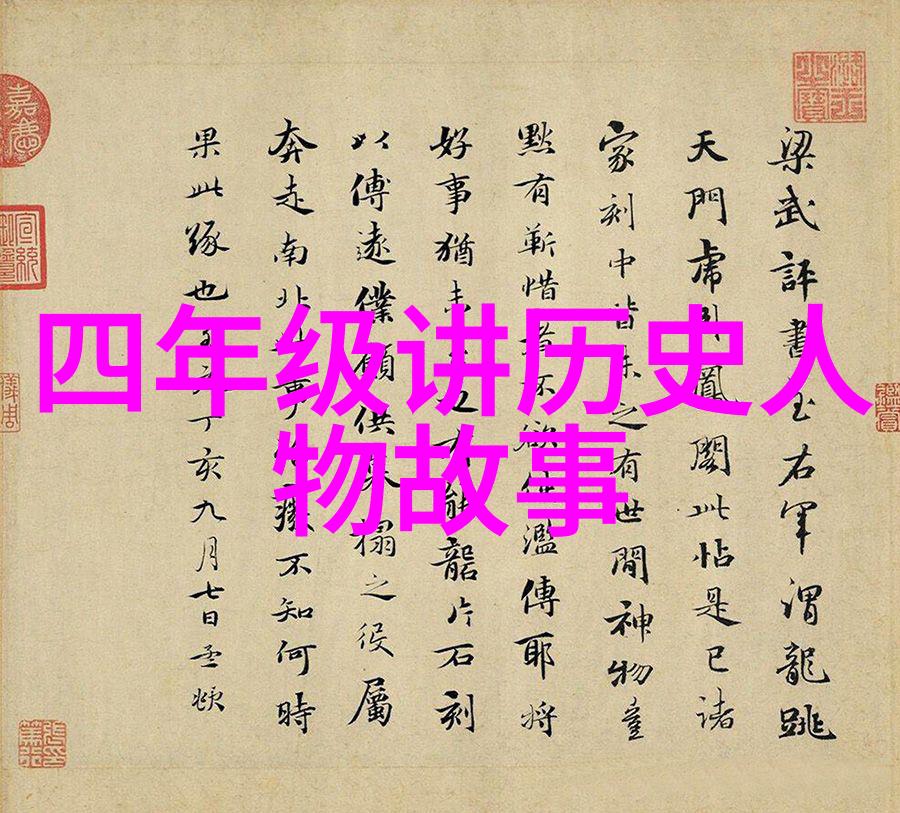 四年级讲历史人
物故事
梁武評書至右軍謂龍跳
天門虎臥鳳閣此帖是已諸
家刻中皆未之有世間神物豈
默有靳惜者不欲濫傳耶將
好事猶未之能片石刻
以傳遠僕願供搨之役屬
奔走南北不知何時
果此緣也至丁亥九月七日孟頫